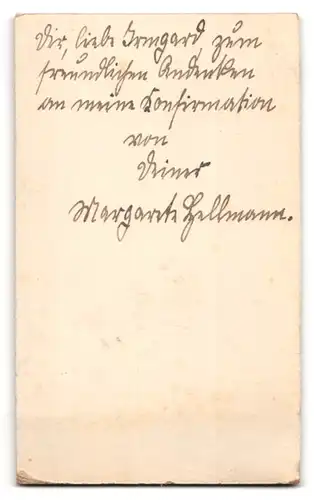 Dir, liebe Irmgard, zum
freundlichen Andenken
an meine Konfirmation
von
Deiner
Margarete Hellmann.